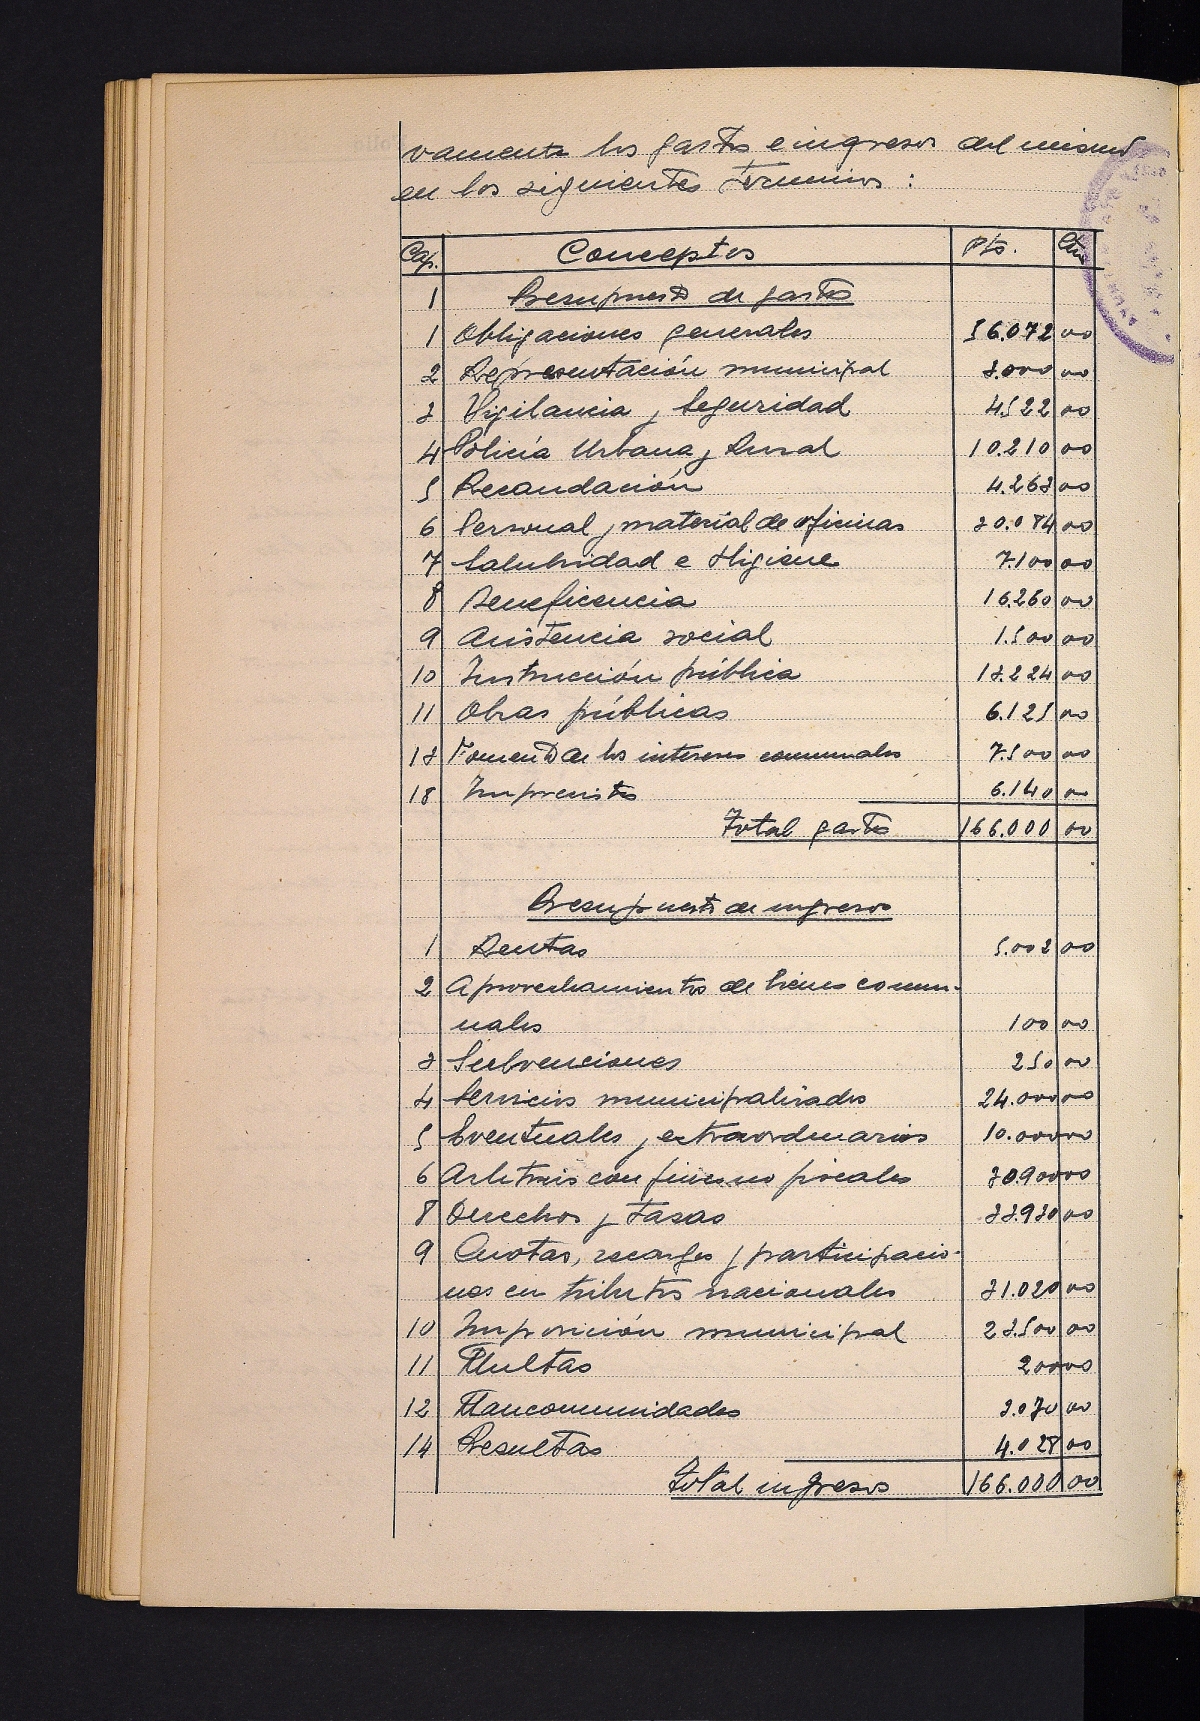 vamente los gastos e ingresos del mismo
en los siguientes términos:
Cap. Conceptos Pts. Cts
1 Presupuesto de gastos
1 Obligaciones generales 56.072 00
2 Representación municipal 3.000 00
3 Vigilancia y Seguridad 4.522 00
4 Policía Urbana y Rural 10.210 00
5 Recaudación 4.263 00
6 Personal y material de oficinas 30.084 00
7 Salubridad e Higiene 7.100 00
8 Beneficencia 16.260 00
9 Asistencia social 1.500 00
10 Instrucción pública 13.224 00
11 Obras públicas 6.125 00
13 Fomento de los intereses comunales 7.500 00
18 Imprevistos 6.140 00
Total gastos 166.000 00
Presupuesto de ingresos
1 Rentas 5.002 00
2 Aprovechamientos de bienes comu-
nales 100 00
3 Subvenciones 250 00
4 Servicios municipalizados 24.000 00
5 Eventuales y extraordinarios 10.000 00
6 Arbitrios con fines no fiscales 30.900 00
8 Derechos y tasas 33.930 00
9 Cuotas, recargos y participacio-
nes en tributos nacionales 31.020 00
10 Imposición municipal 23.500 00
11 Multas 200 00
12 Mancomunidades 3.070 00
14 Resultas 4.028 00
Total ingresos 166.000 00